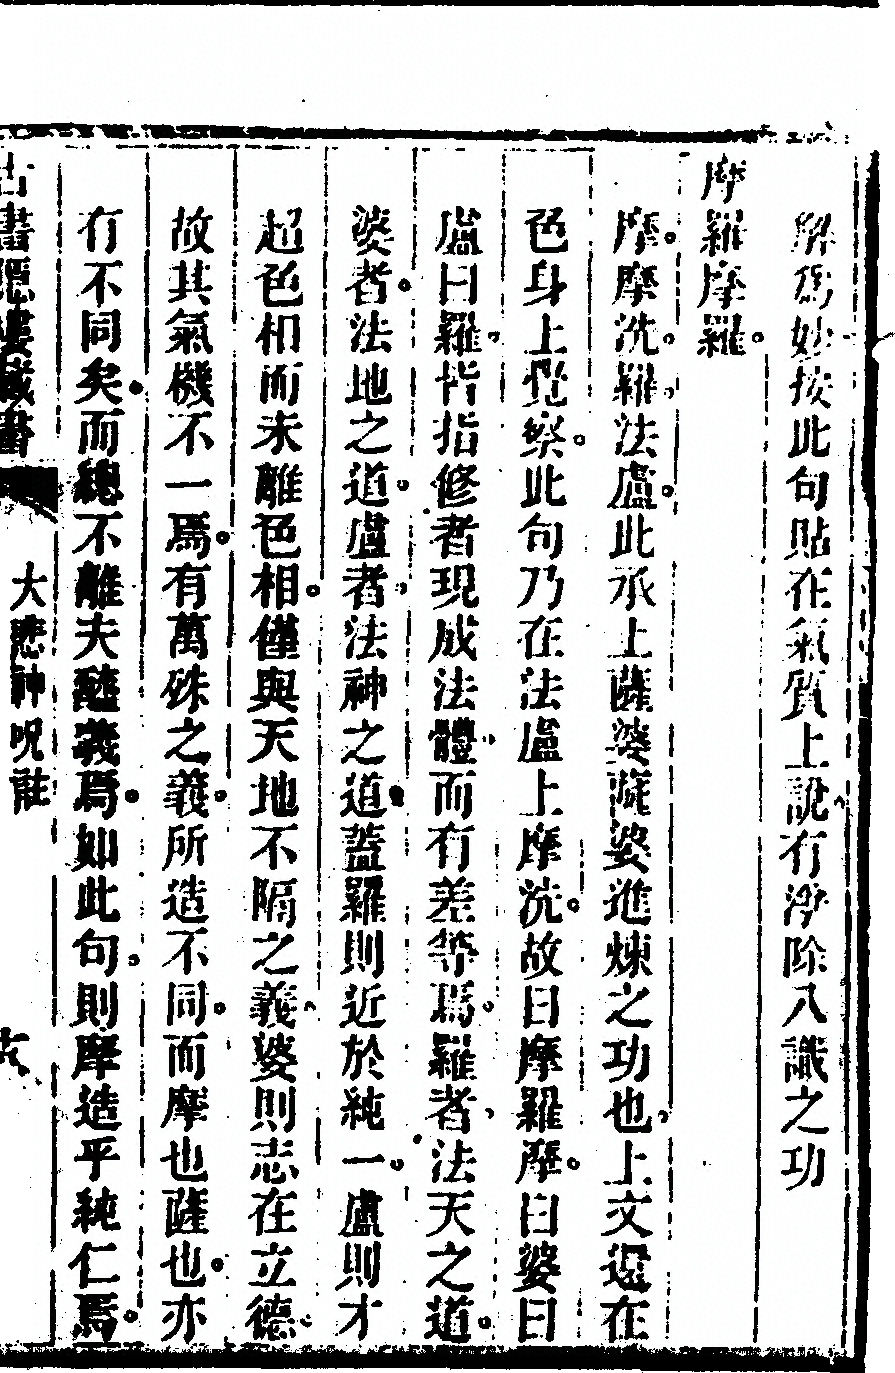 解爲妙按此句貼在氣質上說有淨除八識之功
摩羅摩羅。
摩。摩洗。羅。法盧。此承上薩婆薩婆進煉之功也。上文還在
色身上覺察。此句乃在法盧上摩洗。故曰摩羅摩。曰婆曰
盧曰羅。皆指修者現成法體。而有差等焉。羅者。法天之道。
婆者。法地之道。盧者。法神之道。蓋羅則近於純一。盧則才
超色相而未離色相。僅與天地不隔之義。婆則志在立德。
故其氣機不一焉。有萬殊之義。所造不同。而摩也薩也。亦
有不同矣。而總不離夫醯義焉。如此句。則摩造乎純仁焉。
古書隱樓藏書
大悲神呪註